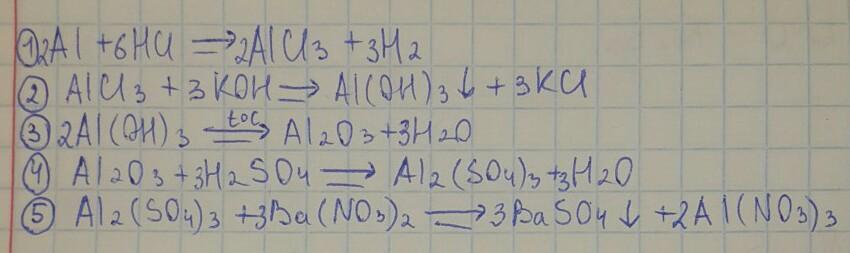 ① 2Al + 6HCl ⟹ 2AlCl₃ + 3H₂
② AlCl₃ + 3KOH ⟹ Al(OH)₃↓ + 3KCl
③ 2Al(OH)₃ =t°C⟹ Al₂O₃ + 3H₂O
④ Al₂O₃ + 3H₂SO₄ ⟹ Al₂(SO₄)₃ + 3H₂O
⑤ Al₂(SO₄)₃ + 3Ba(NO₃)₂ ⟹ 3BaSO₄↓ + 2Al(NO₃)₃